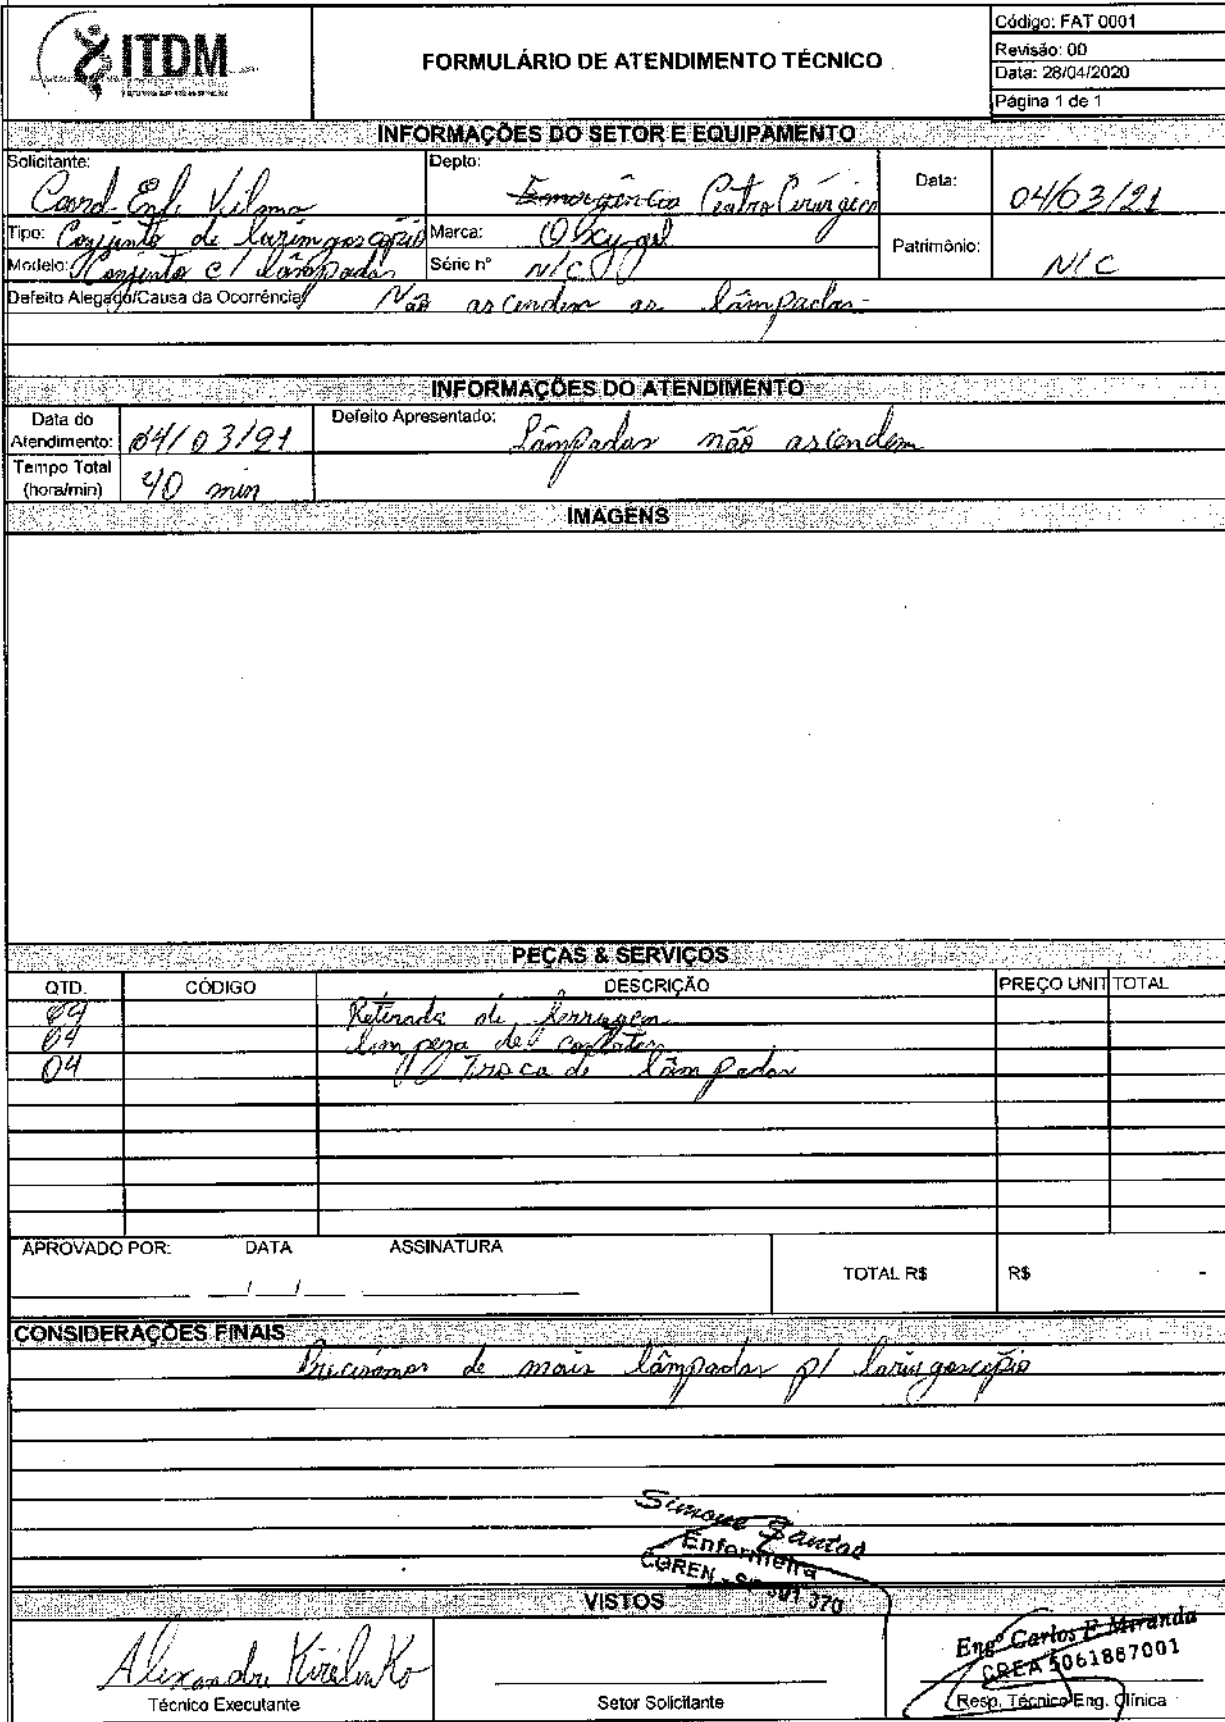 ITDM
FORMULÁRIO DE ATENDIMENTO TÉCNICO
Código: FAT 0001
Revisão: 00
Data: 28/04/2020
Página 1 de 1
INFORMAÇÕES DO SETOR E EQUIPAMENTO
Solicitante: Coord. Enf. Vilma
Depto: Emergência Centro Cirúrgico
Data: 04/03/21
Tipo: Conjunto de laringoscópio
Marca: Oxygel
Patrimônio: N/C
Modelo: Conjunto c/ lâmpadas
Série nº N/C
Defeito Alegado/Causa da Ocorrência: Não ascendem as lâmpadas
INFORMAÇÕES DO ATENDIMENTO
Data do Atendimento: 04/03/21
Defeito Apresentado: Lâmpadas não ascendem
Tempo Total (hora/min) 40 min
IMAGENS
PEÇAS & SERVIÇOS
QTD. CÓDIGO DESCRIÇÃO PREÇO UNIT TOTAL
04 Retirada de ferrugem
04 limpeza de contatos
04 Troca de lâmpadas
APROVADO POR: DATA ASSINATURA
TOTAL R$ R$ -
CONSIDERAÇÕES FINAIS
Precisamos de mais lâmpadas p/ laringoscópio
Simone Santos
Enfermeira
COREN - SP 370
VISTOS
Alexandre Kirilenko
Técnico Executante
Setor Solicitante
Engº Carlos E. Miranda
CREA 5061887001
Resp. Técnico Eng. Clínica